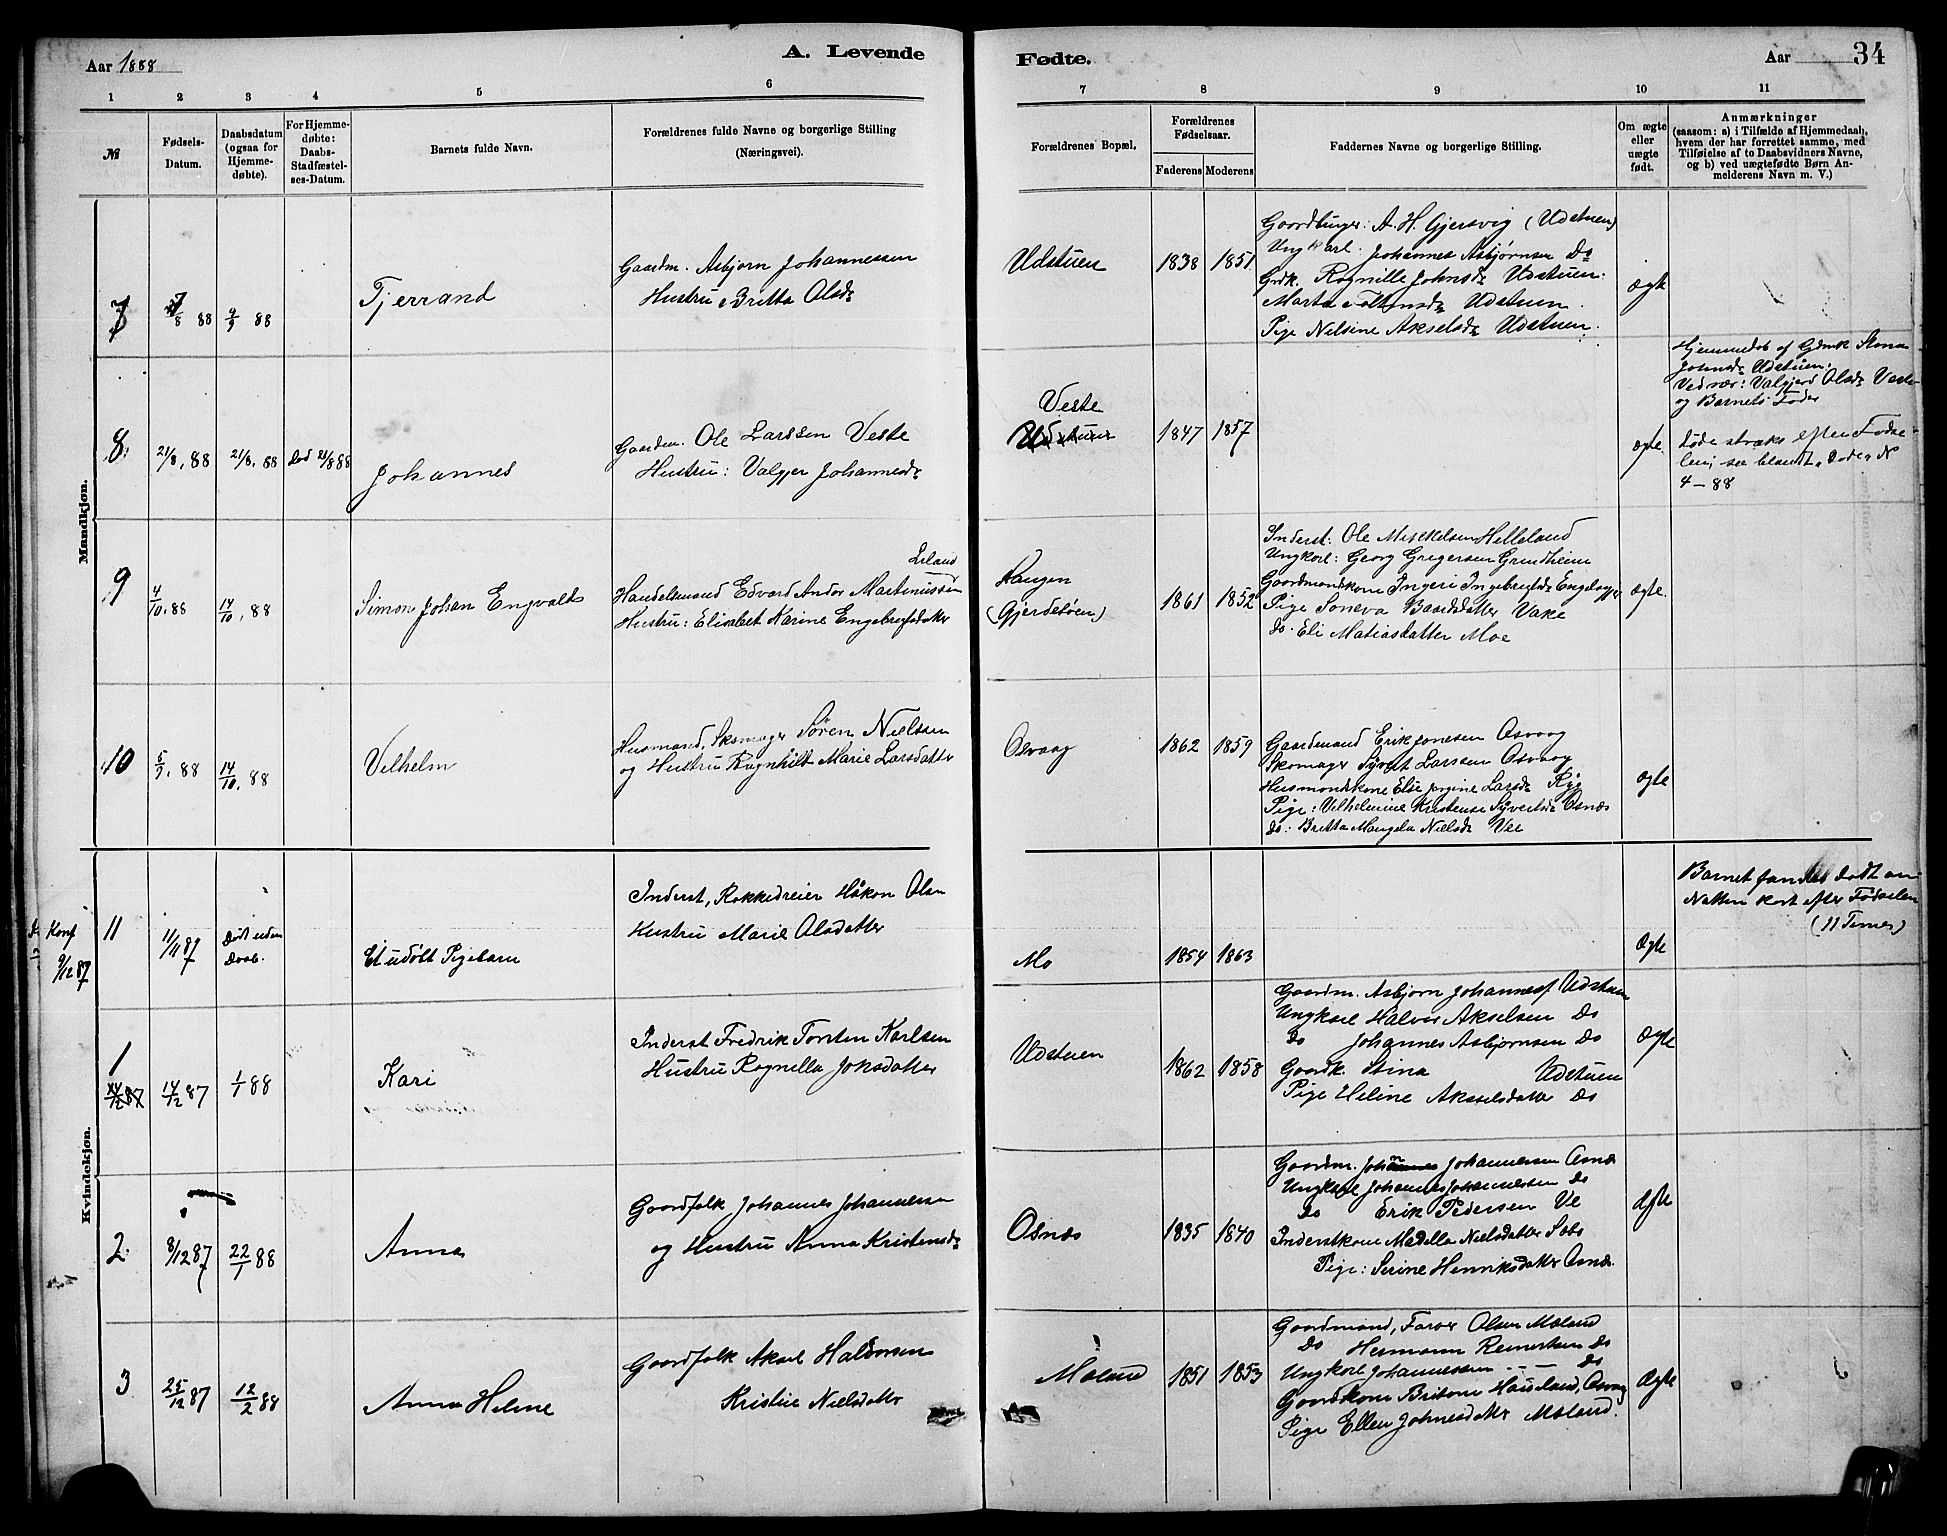 Aar 1888
A. Levende
Fødte.
Aar
34
1 2 3 4 5 6 7 8 9 10 11
No
Fødsels-
Datum.
Daabsdatum
(ogsaa for
Hjemme-
døbte).
For Hjemme-
døbte:
Daabs-
Stadfæstel-
ses-Datum.
Barnets fulde Navn.
Forældrenes fulde Navne og borgerlige Stilling
(Næringsvei).
Forældrenes Bopæl,
Forældrenes
Fødselsaar.
Faderens Moderens
Faddernes Navne og borgerlige Stilling.
Om ægte
eller
uægte
født.
Anmærkninger
(saasom: a) i Tilfælde af Hjemmedaab,
hvem der har forrettet samme, med
Tilføielse af to Daabsvidners Navne,
og b) ved uægtefødte Børn An-
melderens Navn m. V.)
Mandkjøn.
7
7/8 88
9/9 88
Tjerrand
Gaardm. Asbjørn Johannessen
Hustru Britta Olsdr
Udstuen
1838
1851
Gaardbruger: A. H. Gjersvig (Udstuen)
Ungkarl. Johannes Asbjørnsen Do
Grdk. Rognille Johnsdr Udstuen.
Marta Udstuen.
Pige Nelsine Akselsdr Udstuen.
ægte
8.
21/8, 88
21/8, 88
Død 21/8 88
Johannes
Gaardm. Ole Larssen Veste
Hustru: Valgjer Johannesdr
Veste
Udstuen
1847
1857
ægte
Hjemmedøb af Gdmk
Johnsdr Udstuen.
Vedvær: Valgjerd Olsdr Veste
og Barnets Fader
Døde straks efter Fødse-
len, se blandt "Døde" N
4 - 88
9
4/10, 88
14/10, 88
Simon Johan Engvald
Leland
Handelsmand Edvard Andor Martinussen
Hustru: Elisabet Karine Engebretsdatter
Haugen
(Gjerdetøen)
1861
1852
Inderst: Ole Mikkelsen Helleland
Ungkarl: Georg Gregersen Grindheim
Gaardmandskone Ingeri
Pige Soneva Baardsdatter Vake
do. Eli Matiasdatter Moe
ægte.
10
5/9, 88
14/10, 88
Vilhelm
Husmand, Skomager Søren Nielssen
og Hustru Ragnhilt Marie Larsdatter
Osvaag
1862
1859
Gaardmand Erik Jonesen Osvaag
Skomager Syvert Larssen Osvaag
Husmandskone Elie Jørgine Larsdr
Pige: Vilhelmine Kristense Syvertsdr Osnæs
do: Britta Mangela Nielsdr Vee
ægte
Konf
9/12 87
11
11/11 87
Død uden
Daab.
Et udøbt Pigebarn
Inderst, Rokkedreier Håkon Olsen
Hustru Marie Olsdatter
Mo
1854
1863
Ægte
Barnet fandtes dødt om
Natten kort efter Fødselen
(11 Timer)
Kvindekjøn.
1
14/12 87
1/1 88
Kari
Inderst Fredrik Torsten Karlsen
Hustru Rognella Johsdatter
Udstuen
1862
1858
Gaardm. Asbjørn Johannesf Udstuen
Ungkarl Halvor Akselsen Do
Do Johannes Asbjørnsen Do
Gaardk. Stina Udstuen
Pige Heline Akselsdatter Do
ægte
2.
8/12 87
22/1 88
Anna
Gaardfolk Johannes Johannesen
og Hustru Anna Kristensdr
Osnæs
1835
1840
Gaardm. Johannes Johannesen Osnæs
Ungkarl Johannes Johannesen do
Do Erik Pedersen Ve
Inderstkone Madella Nielsdatter
Pige: Serine Henriksdatter Osnæs.
ægte
3
25/12 87
12/2 88
Anna Heline
Gaardfolk Aksel Haldorsen
Kristine Nielsdatter
Moland
1851
1853
Gaardmand, Olsen Moland
Do Hermann Reinertsen Do
Ungkarl Johannessen Do
Gaardkone Haaeland, Osvaag
Pige Ellen Johnesdatter Moland.
Ægte